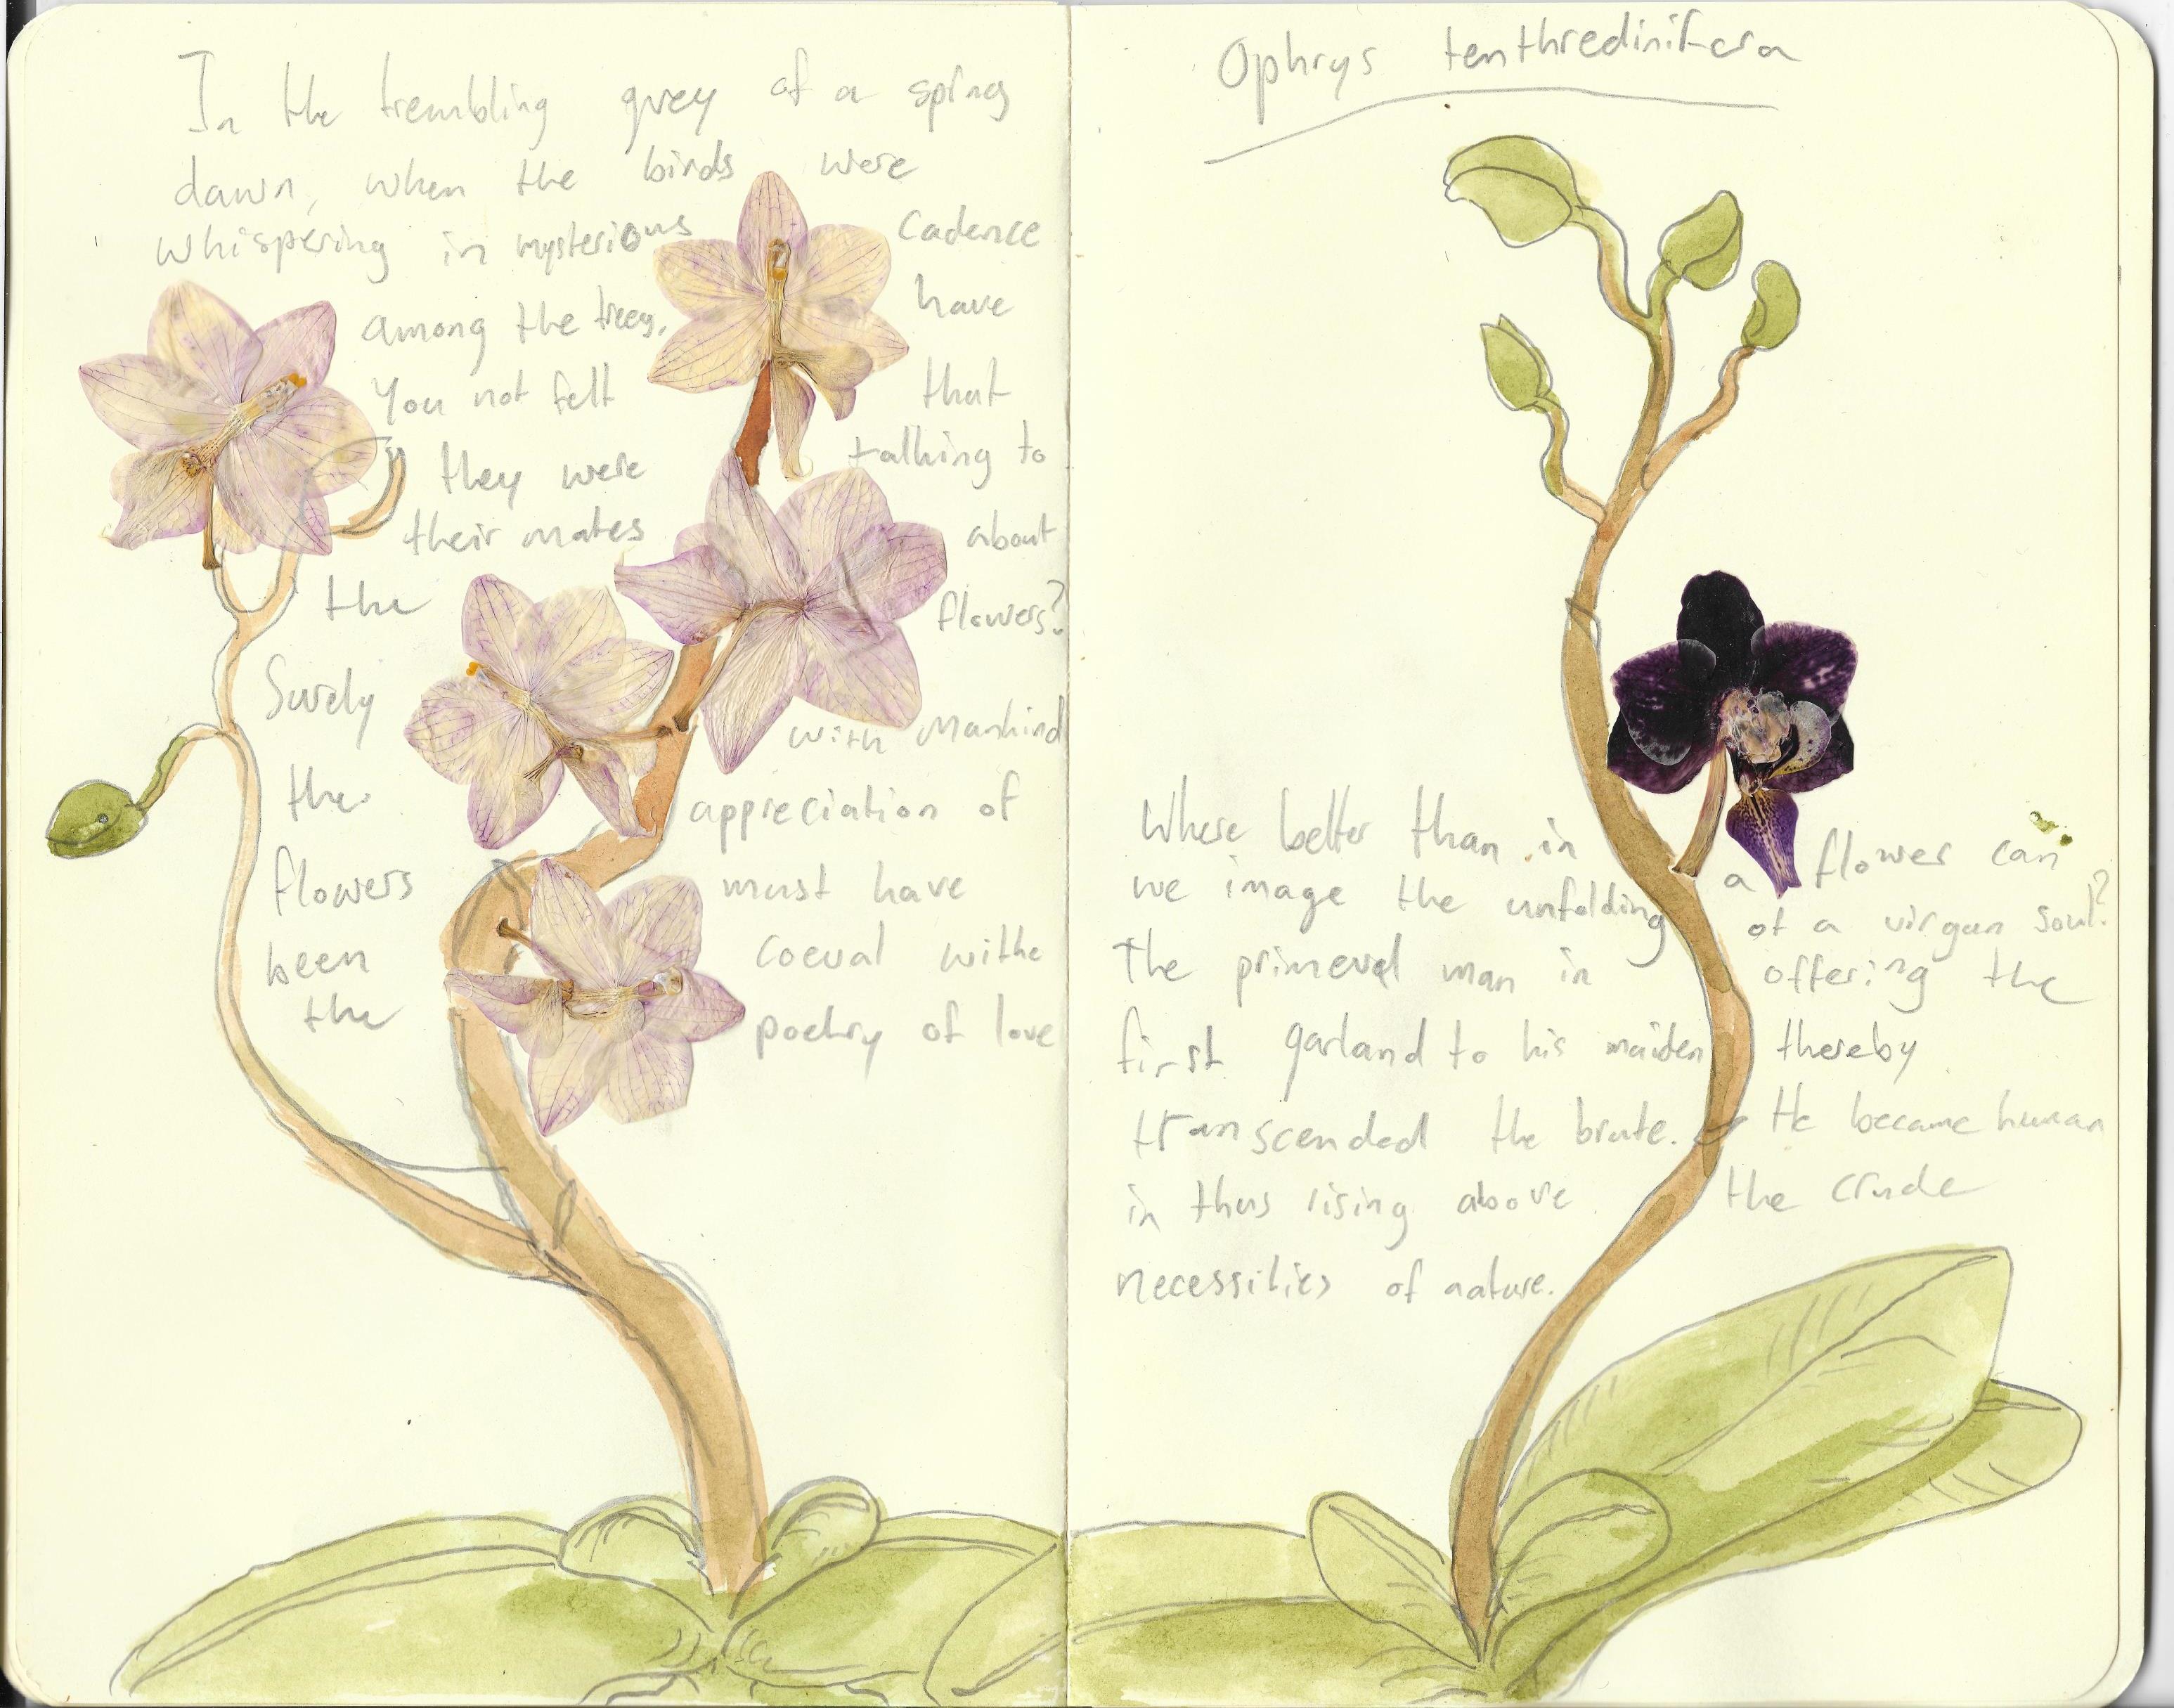 In the trembling grey of a spring
dawn, when the birds were
whispering in mysterious cadence
among the trees, have
you not felt that
they were talking to
their mates about
the flowers?
Surely with Mankind
the appreciation of
flowers must have
been coeval withe
the poetry of love
Ophrys tenthredinifera
Where better than in a flower can
we image the unfolding of a virgun soul?
The primeval man in offering the
first garland to his maiden thereby
transcended the brute. He became human
in thus rising above the crude
necessities of nature.